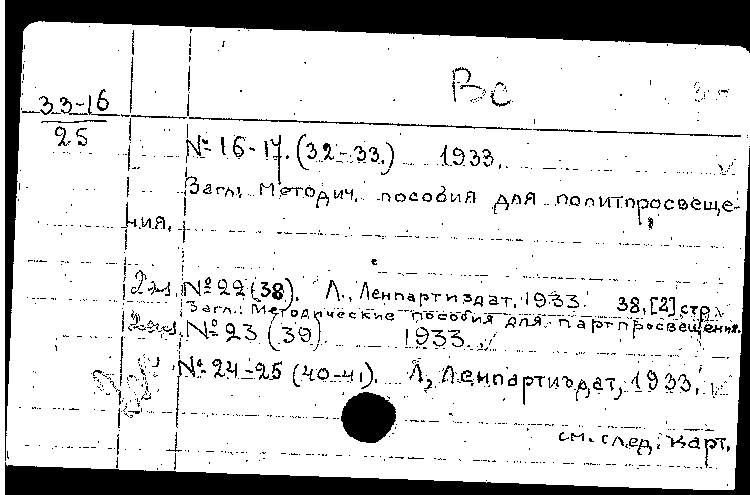 Вс
33-16
25
№ 16-17. (32-33.) 1933.
Загл: Методич. пособия для политпросвеще-
ния.
2 экз. № 22 (38). Л., Ленпартиздат, 1933. 38,[2] стр.
Загл.: Методические пособия для партпросвещения.
2 экз. № 23 (39) 1933.
№ 24-25 (40-41). Л, Ленпартиздат, 1933.
см. след. карт.